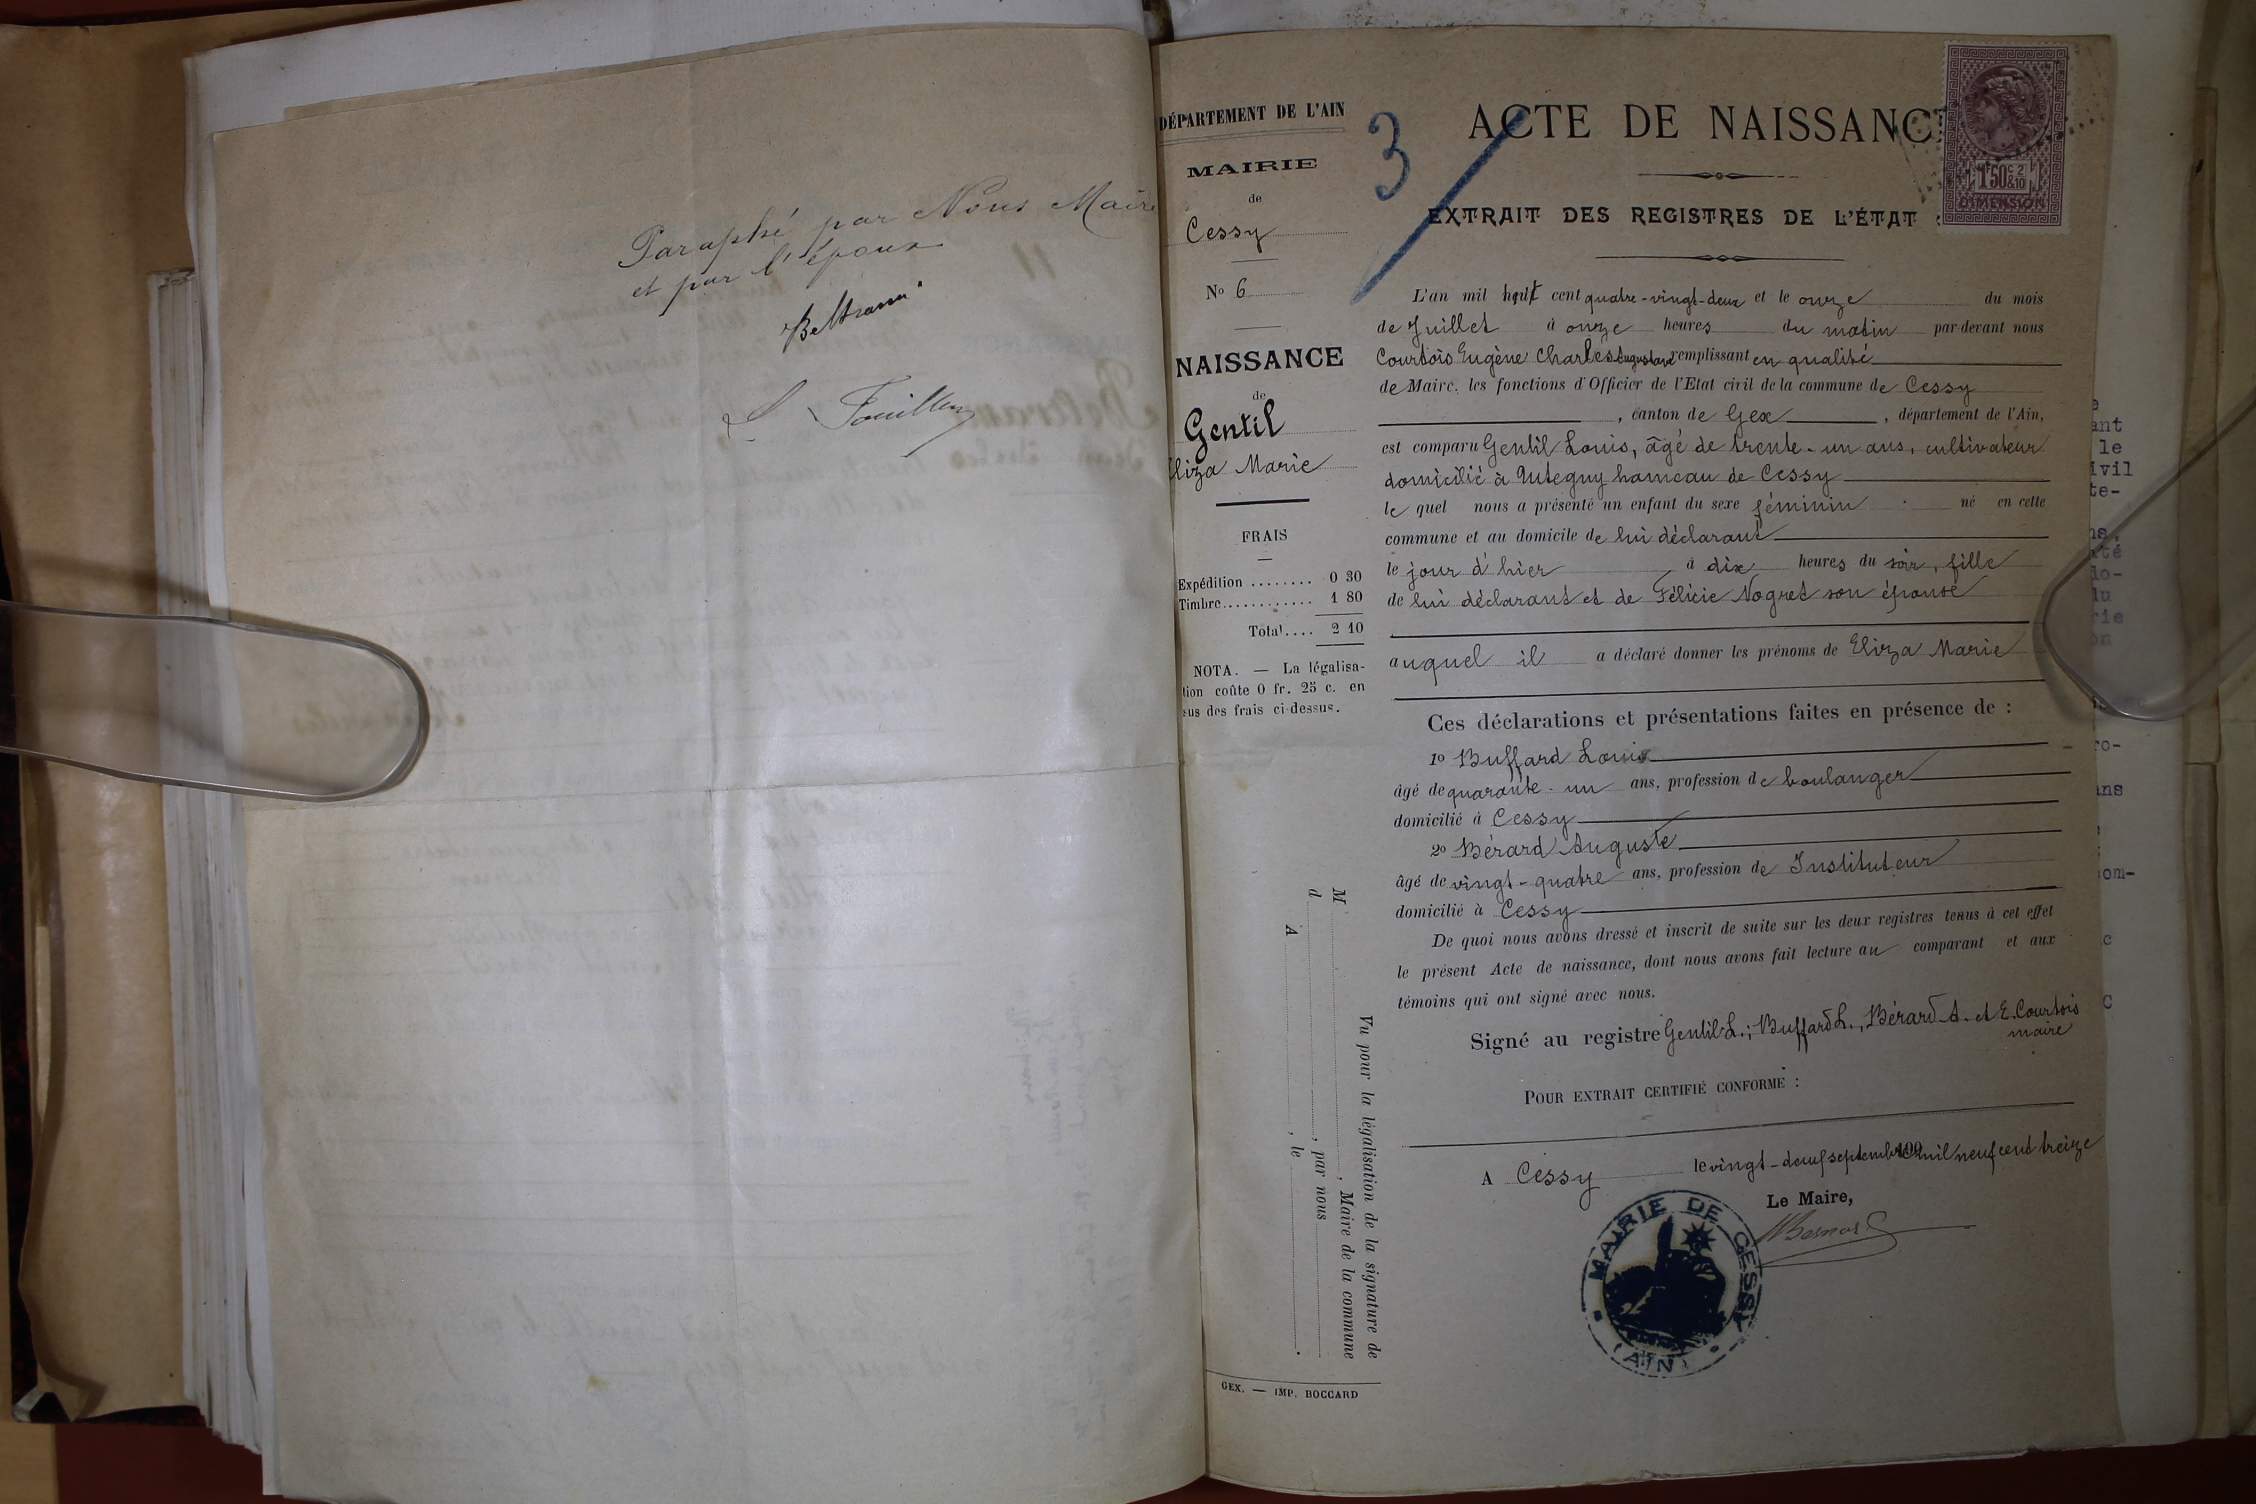 Paraphé par Nous Maire
et par l'époux
Beltrami
DÉPARTEMENT DE L'AIN
MAIRIE
de
Cessy
No 6
NAISSANCE
de
Gentil
Eliza Marie
FRAIS
Expédition ........ 0 30
Timbre............ 1 80
Total.... 2 10
NOTA. — La légalisa-
tion coûte 0 fr. 25 c. en
sus des frais ci-dessus.
M , Maire de la commune
d , par nous
A , le
Vu pour la légalisation de la signature de
GEX. — IMP. BOCCARD
3
ACTE DE NAISSANC
1F50C 2/10
DIMENSION
EXTRAIT DES REGISTRES DE L'ÉTAT
L'an mil huit cent quatre-vingt-deux et le onze du mois
de Juillet à onze heures du matin par-devant nous
Courtois Eugène Charles remplissant en qualité
de Maire, les fonctions d'Officier de l'Etat civil de la commune de Cessy
, canton de Gex , département de l'Ain,
est comparu Gentil Louis, âgé de trente-un ans, cultivateur
domicilié à hameau de Cessy
le quel nous a présenté un enfant du sexe féminin né en cette
commune et au domicile de lui déclarant
le jour d'hier à dix heures du soir, fille
de lui déclarant et de Félicie Nogret son épouse
auquel il a déclaré donner les prénoms de Eliza Marie
Ces déclarations et présentations faites en présence de :
1o Buffard Louis
âgé de quarante-un ans, profession de boulanger
domicilié à Cessy
2o Bérard Auguste
âgé de vingt-quatre ans, profession de Instituteur
domicilié à Cessy
De quoi nous avons dressé et inscrit de suite sur les deux registres tenus à cet effet
le présent Acte de naissance, dont nous avons fait lecture au comparant et aux
témoins qui ont signé avec nous.
Signé au registre Gentil L.; Buffard L., Bérard A. et E. Courtois
maire
POUR EXTRAIT CERTIFIÉ CONFORME :
A Cessy le vingt-deux septembre 190 mil neuf cent treize
Le Maire,
MAIRIE DE CESSY
(AIN)